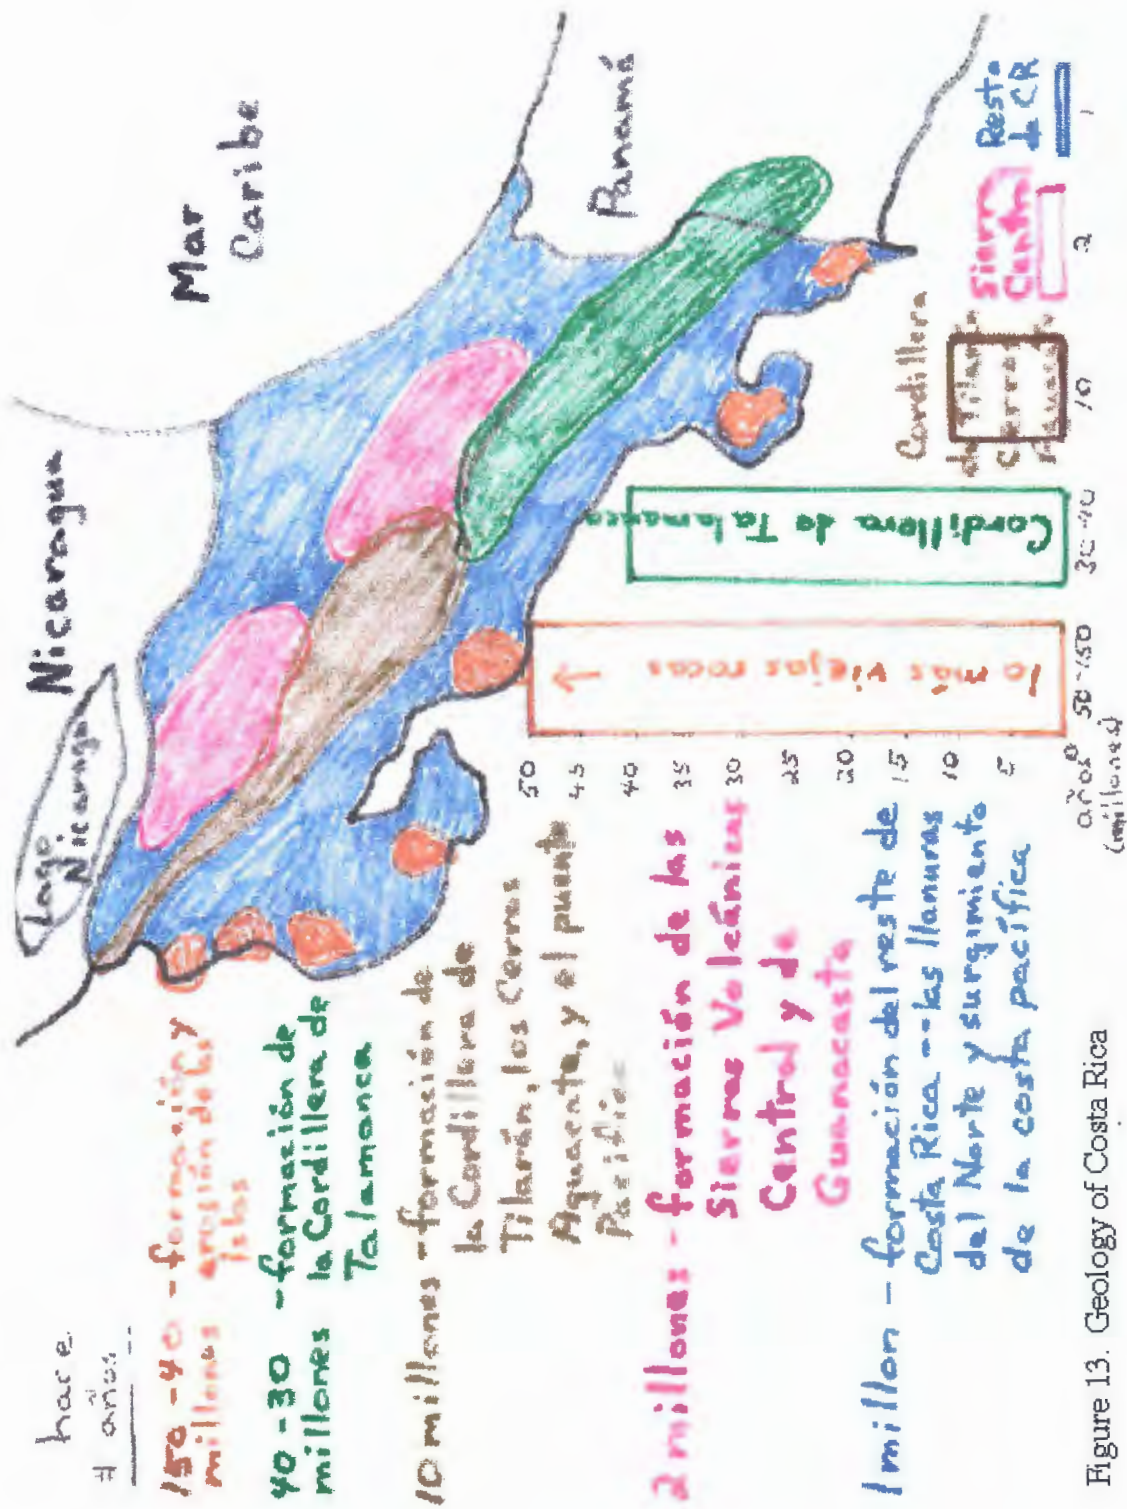 hace
# años
150-40 - formación y
millones erosión de las
Islas
40-30 - formación de
millones la Cordillera de
Talamanca
10 millones - formación de
la Cordillera de
Tilarán, los Cerros
Aguacate, y el puente
Pacífic
2 millones - formación de las
Sierras Volcánicas
Central y de
Guanacaste
1 millon - formación del reste de
Costa Rica -- las llanuras
del Norte y surgimiento
de la costa pacífica
Lago
Nicaragua
Nicaragua
Mar
Caribe
Panamá
50
45
40
35
30
25
20
15
10
5
años
(millones)
lo más viejas rocas
50-150
Cordillera de Talamanca
30-40
Cordillera
de Tilarán
Cerros
10
Sierra
Centra
2
Resto
de CR
1
Figure 13. Geology of Costa Rica